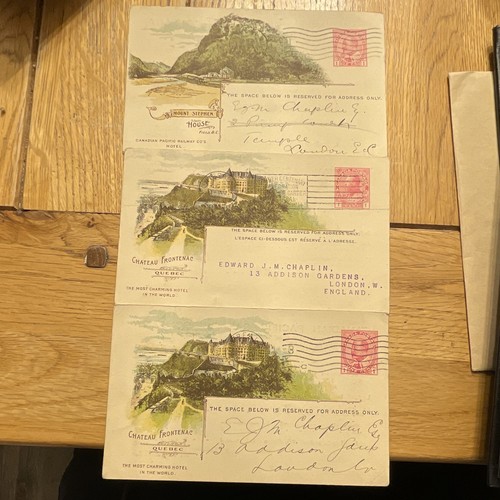 THE SPACE BELOW IS RESERVED FOR ADDRESS ONLY.
MOUNT STEPHEN
HOUSE
FIELD B.C.
CANADIAN PACIFIC RAILWAY CO'S.
HOTEL.
E J M Chaplin Eq
Temple
London E.C
THE SPACE BELOW IS RESERVED FOR ADDRESS ONLY.
L'ESPACE CI-DESSOUS EST RÉSERVÉ A L'ADRESSE.
CHATEAU FRONTENAC
QUEBEC
THE MOST CHARMING HOTEL
IN THE WORLD.
EDWARD J.M. CHAPLIN,
13 ADDISON GARDENS,
LONDON, W.
ENGLAND.
THE SPACE BELOW IS RESERVED FOR ADDRESS ONLY.
CHATEAU FRONTENAC
QUEBEC
THE MOST CHARMING HOTEL
IN THE WORLD.
E J M Chaplin Eq
13 Addison Gans
London W